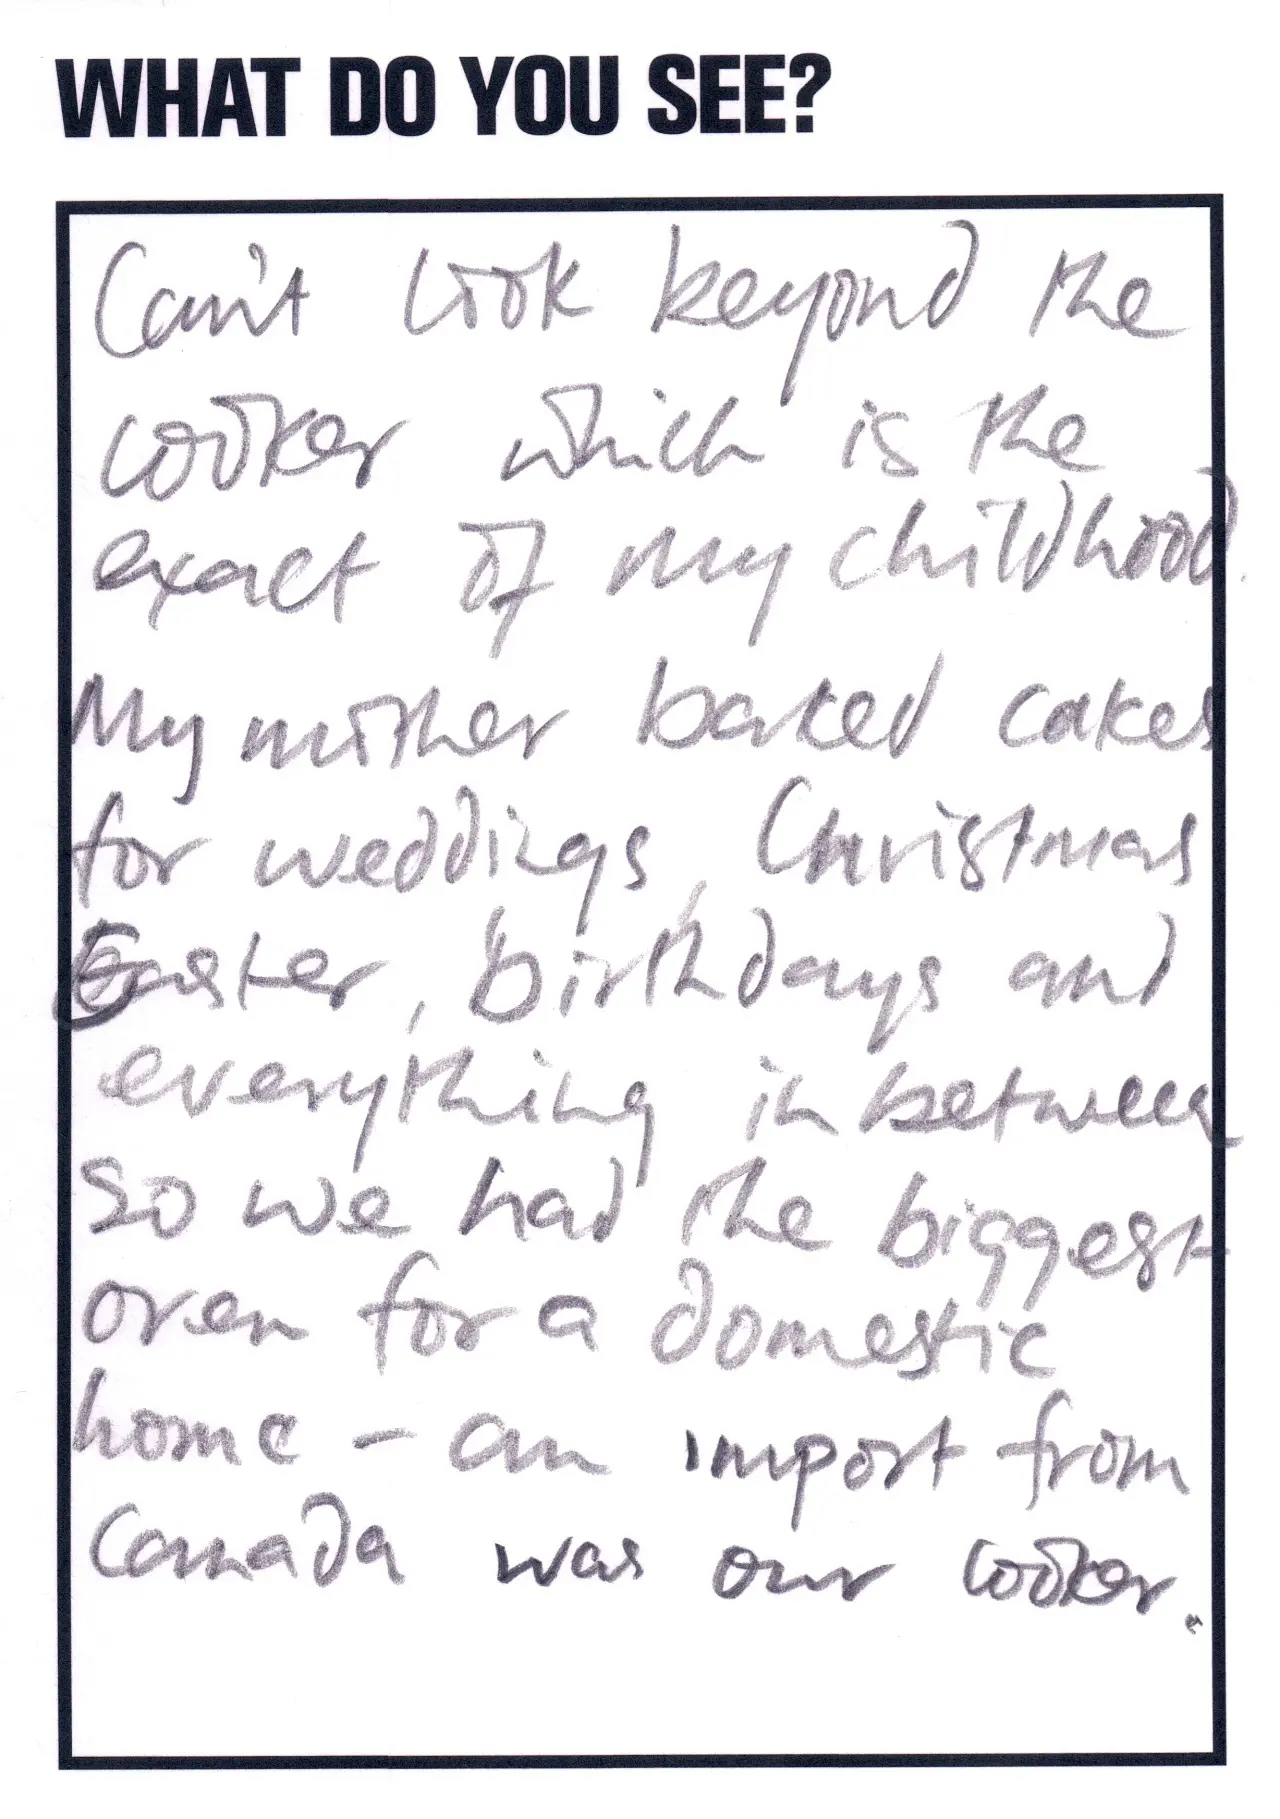 WHAT DO YOU SEE?
Can't look beyond the
cooker which is the
exact of my childhood.
My mother baked cakes
for weddings, Christmas
Easter, birthdays and
everything in between
so we had the biggest
oven for a domestic
home - an import from
Canada was our cooker.